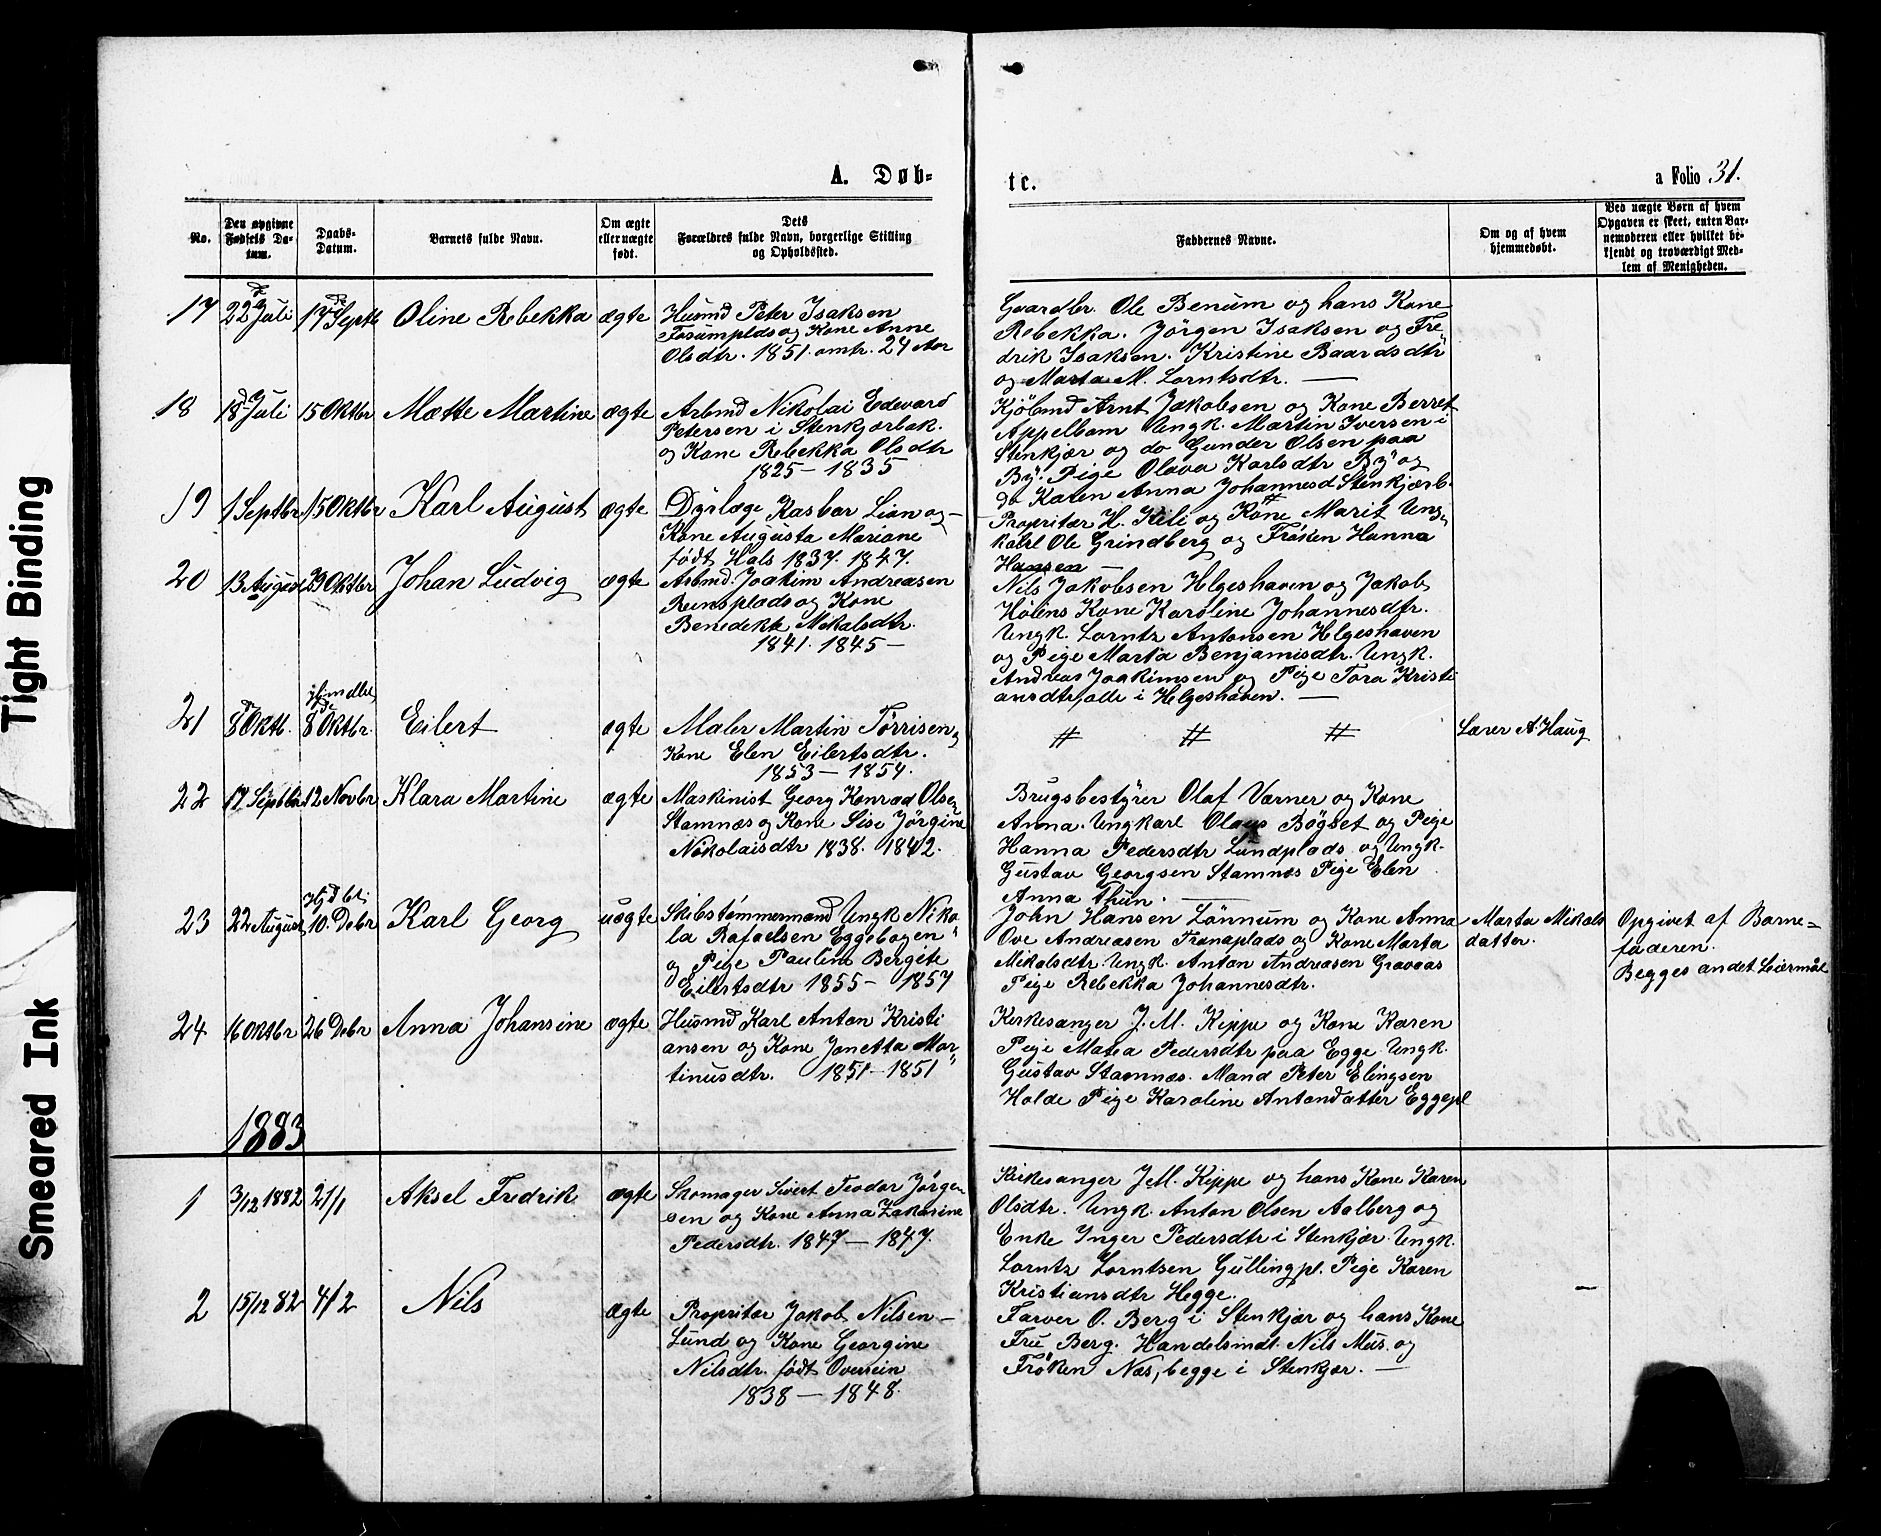 Tight Binding
Smeared Ink
A. Døb-
No.
Den opgivne Fødsels Da-tum.
Daabs-Datum.
Barnets fulde Navn.
Om ægte eller uægte født.
Dets Forældres fulde Navn, borgerlige Stilling og Opholdssted.
17
22de Juli
17de Septb
Oline Rebekka
ægte
Husmd Peter Isaksen
Fosumplads og Kone Anne
Olsdtr. 1851. omtr. 24 Aar
18
18de Juli
15 Oktbr
Mætte Martine
ægte
Arbmd Nikolai Edevard
Petersen i Stenkjærbak.
og Kone Rebekka Olsdtr
1825 – 1835
19
1 Septbr
15 Oktbr
Karl August
ægte
Dyrlæge Kasbar Lian og –
Kone Augusta Mariane
født Hals 1837. 1847.
20
13 August
29 Oktbr
Johan Ludvig
ægte
Arbmd. Joakim Andreasen
Reinsplads og Kone
Benedekte Mikalsdtr.
1841. 1845 –
21
8de Oktb.
8de Oktbr.
Eilert
ægte
Maler Martin Tørrisen og
Kone Elen Eilertsdtr.
1853 – 1854.
22
17 Septbr
12 Novbr
Klara Martine
ægte
Maskinist Georg Konrad Olsen
Stamnæs og Kone Sise Jørgine
Nikolaisdtr 1838. 1842.
23
22 August
10. Debr
Karl Georg
uægte
Skibstømmermand Ungk Niko
la Rafaelsen Eggebogen
og Pige Pauline Bergite
Eilertsdtr 1855 – 1857
24
16 Oktbr
26 Debr
Anna Johansine
ægte
Husmd Karl Anton Kristi
ansen og Kone Jonetta Mar
tinusdtr. 1851 – 1851
1883
1
3/12 1882
21/1
Aksel Fredrik
ægte
Skomager Sivert Teodor Jørgen
sen og Kone Anna Zakarine
Pedersdtr. 1847 – 1847.
2
15/12 82
4/2
Nils
ægte
Propritær Jakob Nilsen –
Lund og Kone Georgine
Nilsdtr. født Overrein
1838 – 1848.
te.
a Folio 31.
Faddernes Navne.
Om og af hvem hjemmedøbt.
Ved uægte Børn af hvem
Opgaven er skeet, enten Bar-
nemoderen eller hvilket be-
kjendt og troværdigt Med-
lem af Menigheden.
Gaardbr. Ole Benum og hans Kone
Rebekka. Jørgen Isaksen og Fre
drik Isaksen. Kristine Baardsdtr
og Marta M. Lorntsdtr. –
Kjøbmd Arnt Jakobsen og Kone Berret
Appelbom Ungk. Martin Iversen i
Stenkjær og do Gunder Olsen paa
By. Pige Olava Karlsdtr By og
do Karen Anna Johannesd Stenkjærb.
Propritær H. Kili og Kone Marit Ung
karl Ole Grindberg og Frøken Hanna
Hansen –
Nils Jakobsen Helgeshaven og Jakob
Høiens Kone Karoline Johannesdtr.
Ungk. Lorntz Antonsen Helgeshaven
og Pige Marta Benjamisdtr. Ungk.
Andreas Joakimsen og Pige Tora Kristi
ansdtr, alle i Helgeshaven. –
# # #
Lærer A. Haug
Brugsbestyrer Olaf Værner og Kone
Anna. Ungkarl Olaus Bøgset og Pige
Hanna Pedersdtr Lundplads og Ungk.
Gustav Georgsen Stamnæs Pige Elen
Anna Thun.
John Hansen Lønnum og Kone Anna
Ove Andreasen Tranaplads og Kone Marta
Mikalsdtr. Ungk. Anton Andreasen Graveaas
Pige Rebekka Johannesdtr.
Marta Mikals
datter.
Opgivet af Barne=
faderen.
Begges andet Leiermål
Kirkesanger J. M. Kippe og Kone Karen
Pige Matea Pedersdtr paa Egge. Ungk.
Gustav Stamnæs. Mand Peter Elingsen
Holde Pige Karoline Antondatter Eggepl
Kirkesanger J.M. Kippe og hans Kone Karen
Olsdtr. Ungk. Anton Olsen Aalberg og
Enke Inger Pedersdtr i Stenkjær. Ungk.
Lorntz Lorntsen Gullingpl. Pige Karen
Kristiansdtr Hegge.
Farver O. Berg i Stenkjær og hans Kone
Fru Berg. Handelsmdt. Nils Mus. og
Frøken Næs, begge i Stenkjær. –